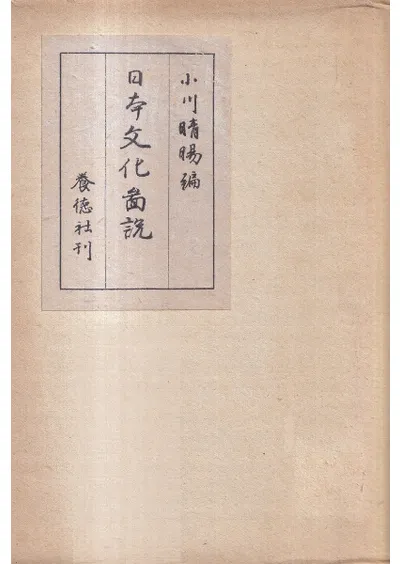 小川晴暘編
日本文化図説
養徳社刊